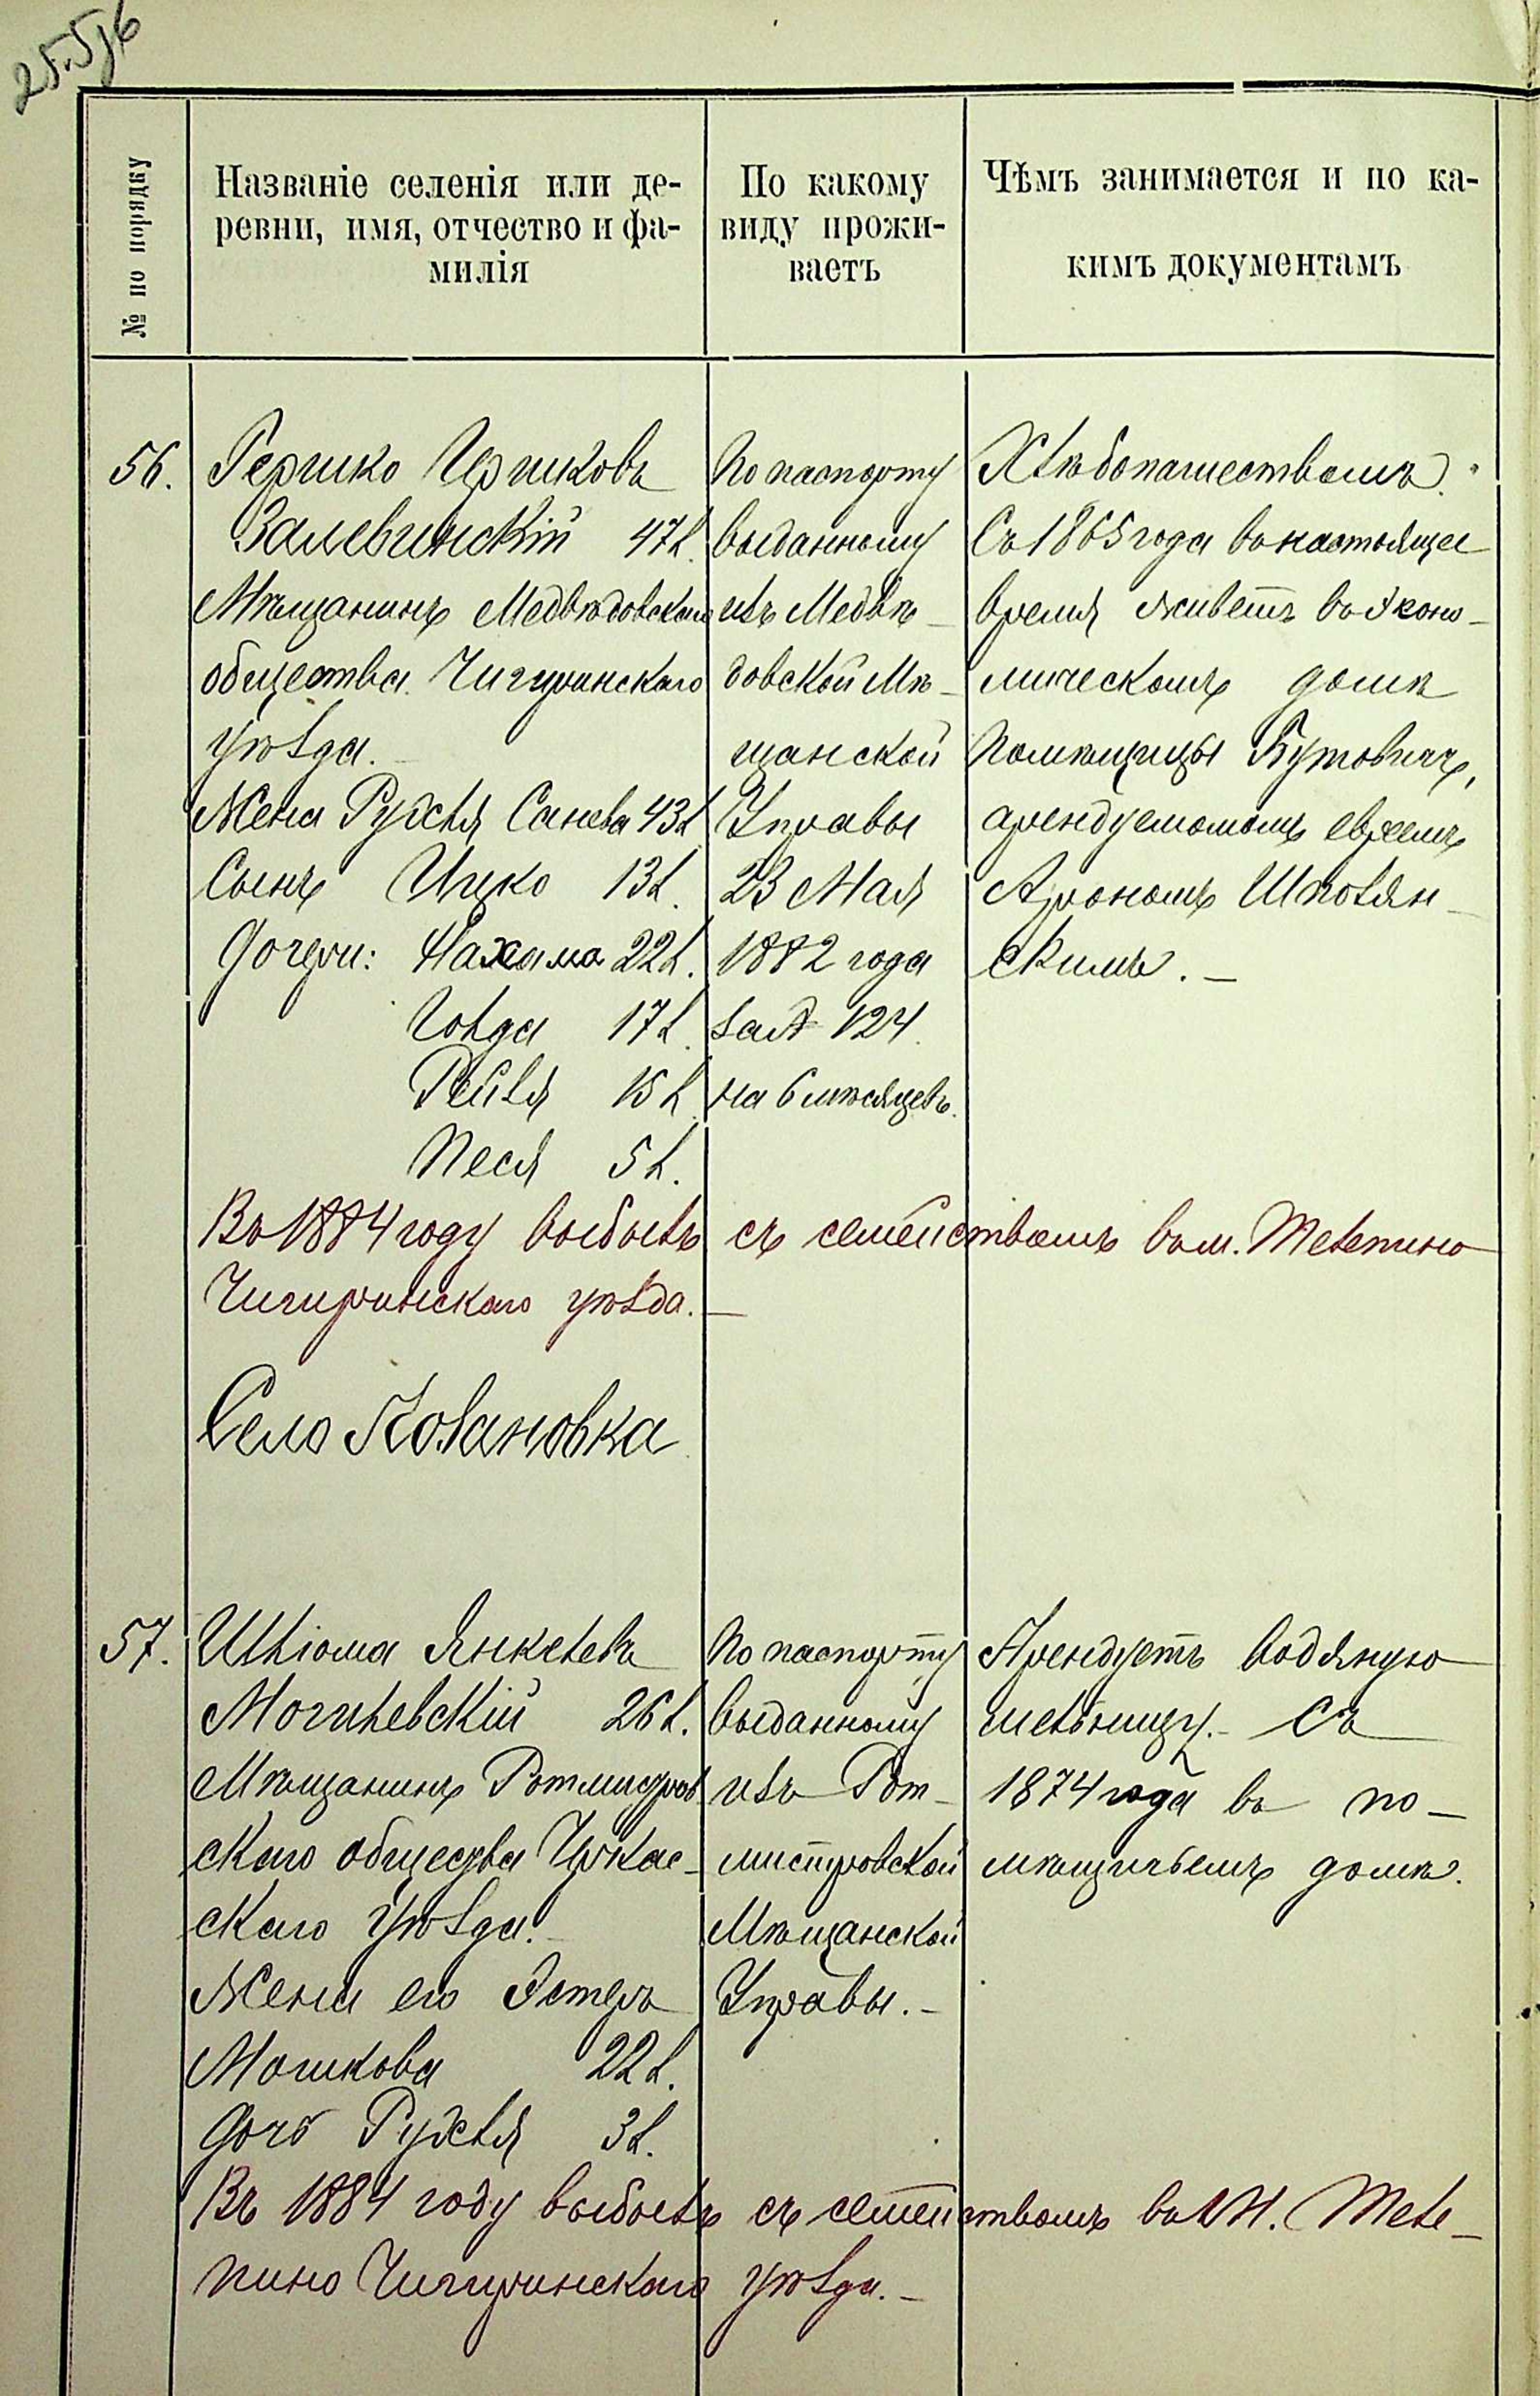 25.5/6
№ по порядку
Названіе селенія или де-
ревни, имя, отчество и фа-
милія
По какому
виду прожи-
ваетъ
Чѣмъ занимается и по ка-
кимъ документамъ
56.
Гершко Гершковъ
Залевинскій 47 л.
Мѣщанинъ Медвѣдовскаго
общества Чигиринскаго
уѣзда.
Жена Рухля 43 л
Сынъ Ицко 13 л.
Дочери: Нахама 22 л.
Голда 17 л.
Рейзя 15 л.
Песя 5 л.
По паспорту
выданному
изъ Медвѣ-
довской Мѣ-
щанской
Управы
23 Мая
1882 года
за № 124
на 6 мѣсяцевъ.
Хлѣбопашествомъ.
Съ 1865 года въ настоящее
время живетъ въ эконо-
мическомъ домѣ
помѣщицы Бутовичъ,
арендуемомъ евреемъ
Арономъ Шполян-
скимъ. —
Въ 1884 году выбылъ съ семействомъ въ м. Телепино
Чигиринскаго уѣзда. —
Село Ковановка
57.
Шліома Янкелевъ
Могилевскій 26 л.
Мѣщанинъ Ротмистров
скаго общества Черкас-
скаго уѣзда. —
Жена его Эстеръ
Мошкова 22 л.
Дочь Рухля 3 л.
По паспорту
выданному
изъ Рот-
мистровской
Мѣщанской
Управы. —
Арендуетъ водяную
мельницу. — Съ
1874 года въ по-
мѣщичьемъ домѣ.
Въ 1884 году выбылъ съ семействомъ въ М. Теле-
пино Чигиринскаго уѣзда. —